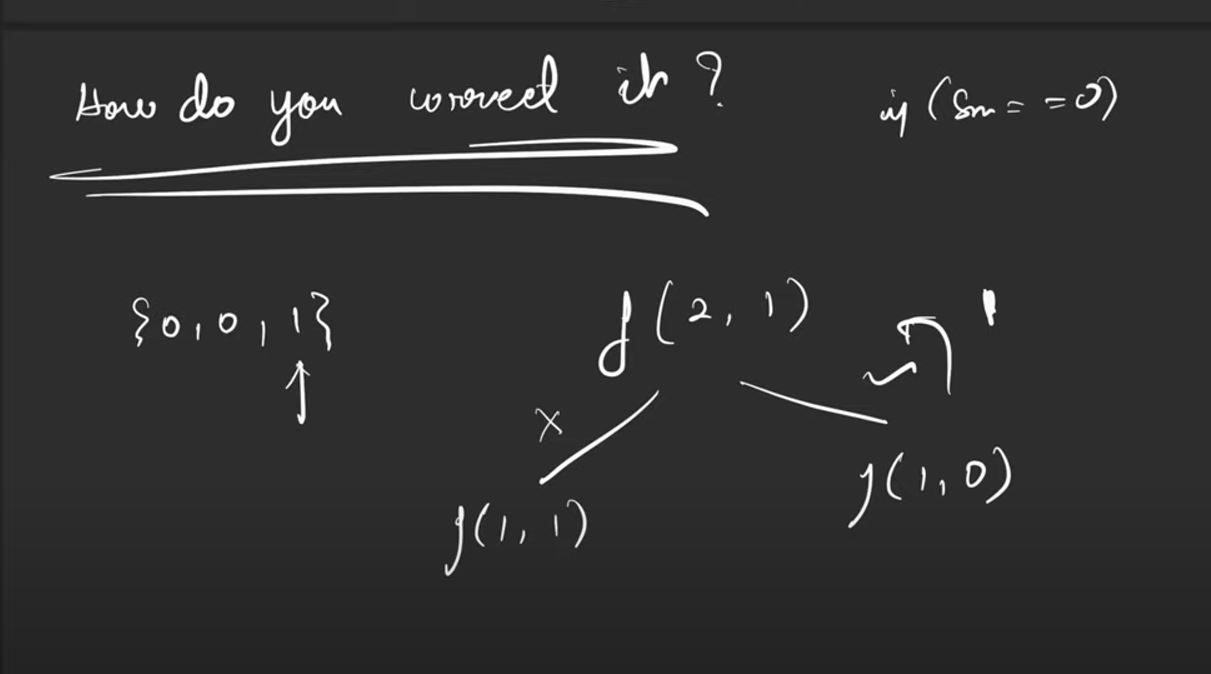 How do you correct it?
if (Sm = = 0)
{0, 0, 1}
f(2, 1)
x
f(1, 1)
f(1, 0)
1